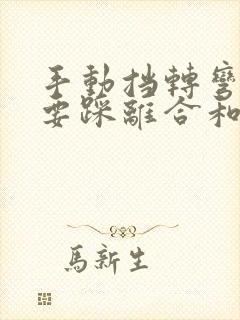 手動挡轉彎
要踩離合和
馬新生